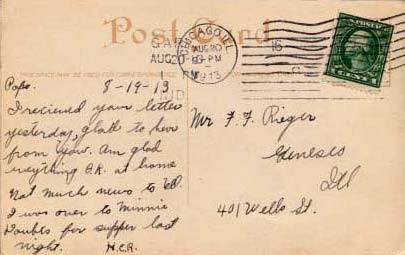 Post Card
CHICAGO, ILL
AUG 20
9-PM
1913
AUG 20
16
Papa. 8-19-13
I recieved your letter
yesterday, glad to hear
from you. Am glad
everything O.K. at home
Not much news to tell
I was over to Minnie
Doubts for supper last
night. H.C.R.
Mr F. F. Rieger
Geneseo
Ill
401 Wells St.